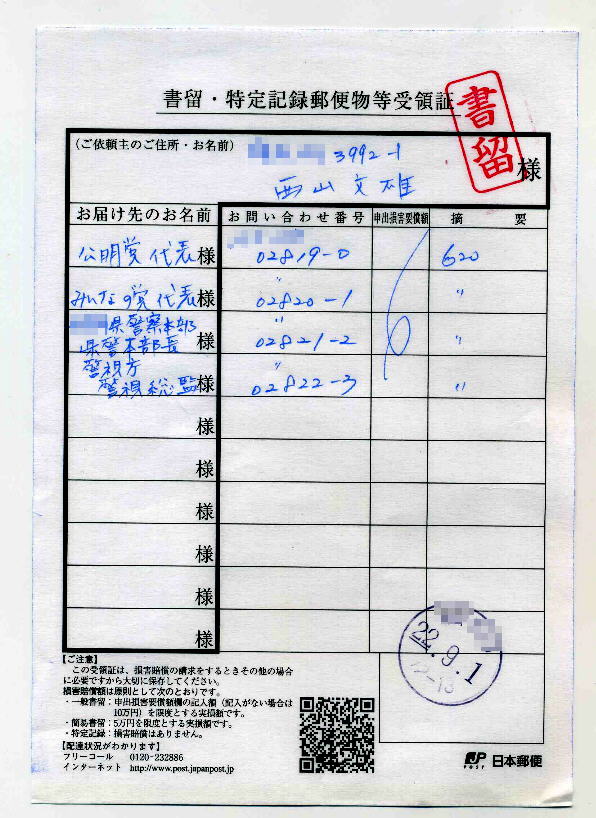 書留・特定記録郵便物等受領証
書留
(ご依頼主のご住所・お名前)
3992-1
西山文雄 様
お届け先のお名前 お問い合わせ番号 申出損害要償額 摘 要
公明党代表様 02819-0 620
みんなの党代表様 〃 02820-1 〃
県警察本部
県警本部長様 〃 02821-2 〃
警視方
警視総監様 〃 02822-3 〃
様
様
様
様
様
様
【ご注意】
この受領証は、損害賠償の請求をするときその他の場合
に必要ですから大切に保存してください。
損害賠償額は原則として次のとおりです。
・一般書留：申出損害要償額欄の記入額（記入がない場合は
10万円）を限度とする実損額です。
・簡易書留：5万円を限度とする実損額です。
・特定記録：損害賠償はありません。
【配達状況がわかります】
フリーコール 0120-232886
インターネット http://www.post.japanpost.jp
22.9.1
12-18
JP POST 日本郵便